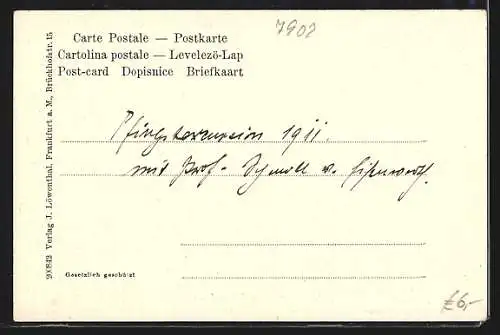 7902
Carte Postale — Postkarte
Cartolina postale — Levelezö-Lap
Post-card Dopisnice Briefkaart
Pfingstexcursion 1911.
mit Prof. Schmoll v. Eisenwerth.
Gesetzlich geschützt
200842 Verlag J. Löwenthal, Frankfurt a. M., Brückhofstr. 15
€6,-